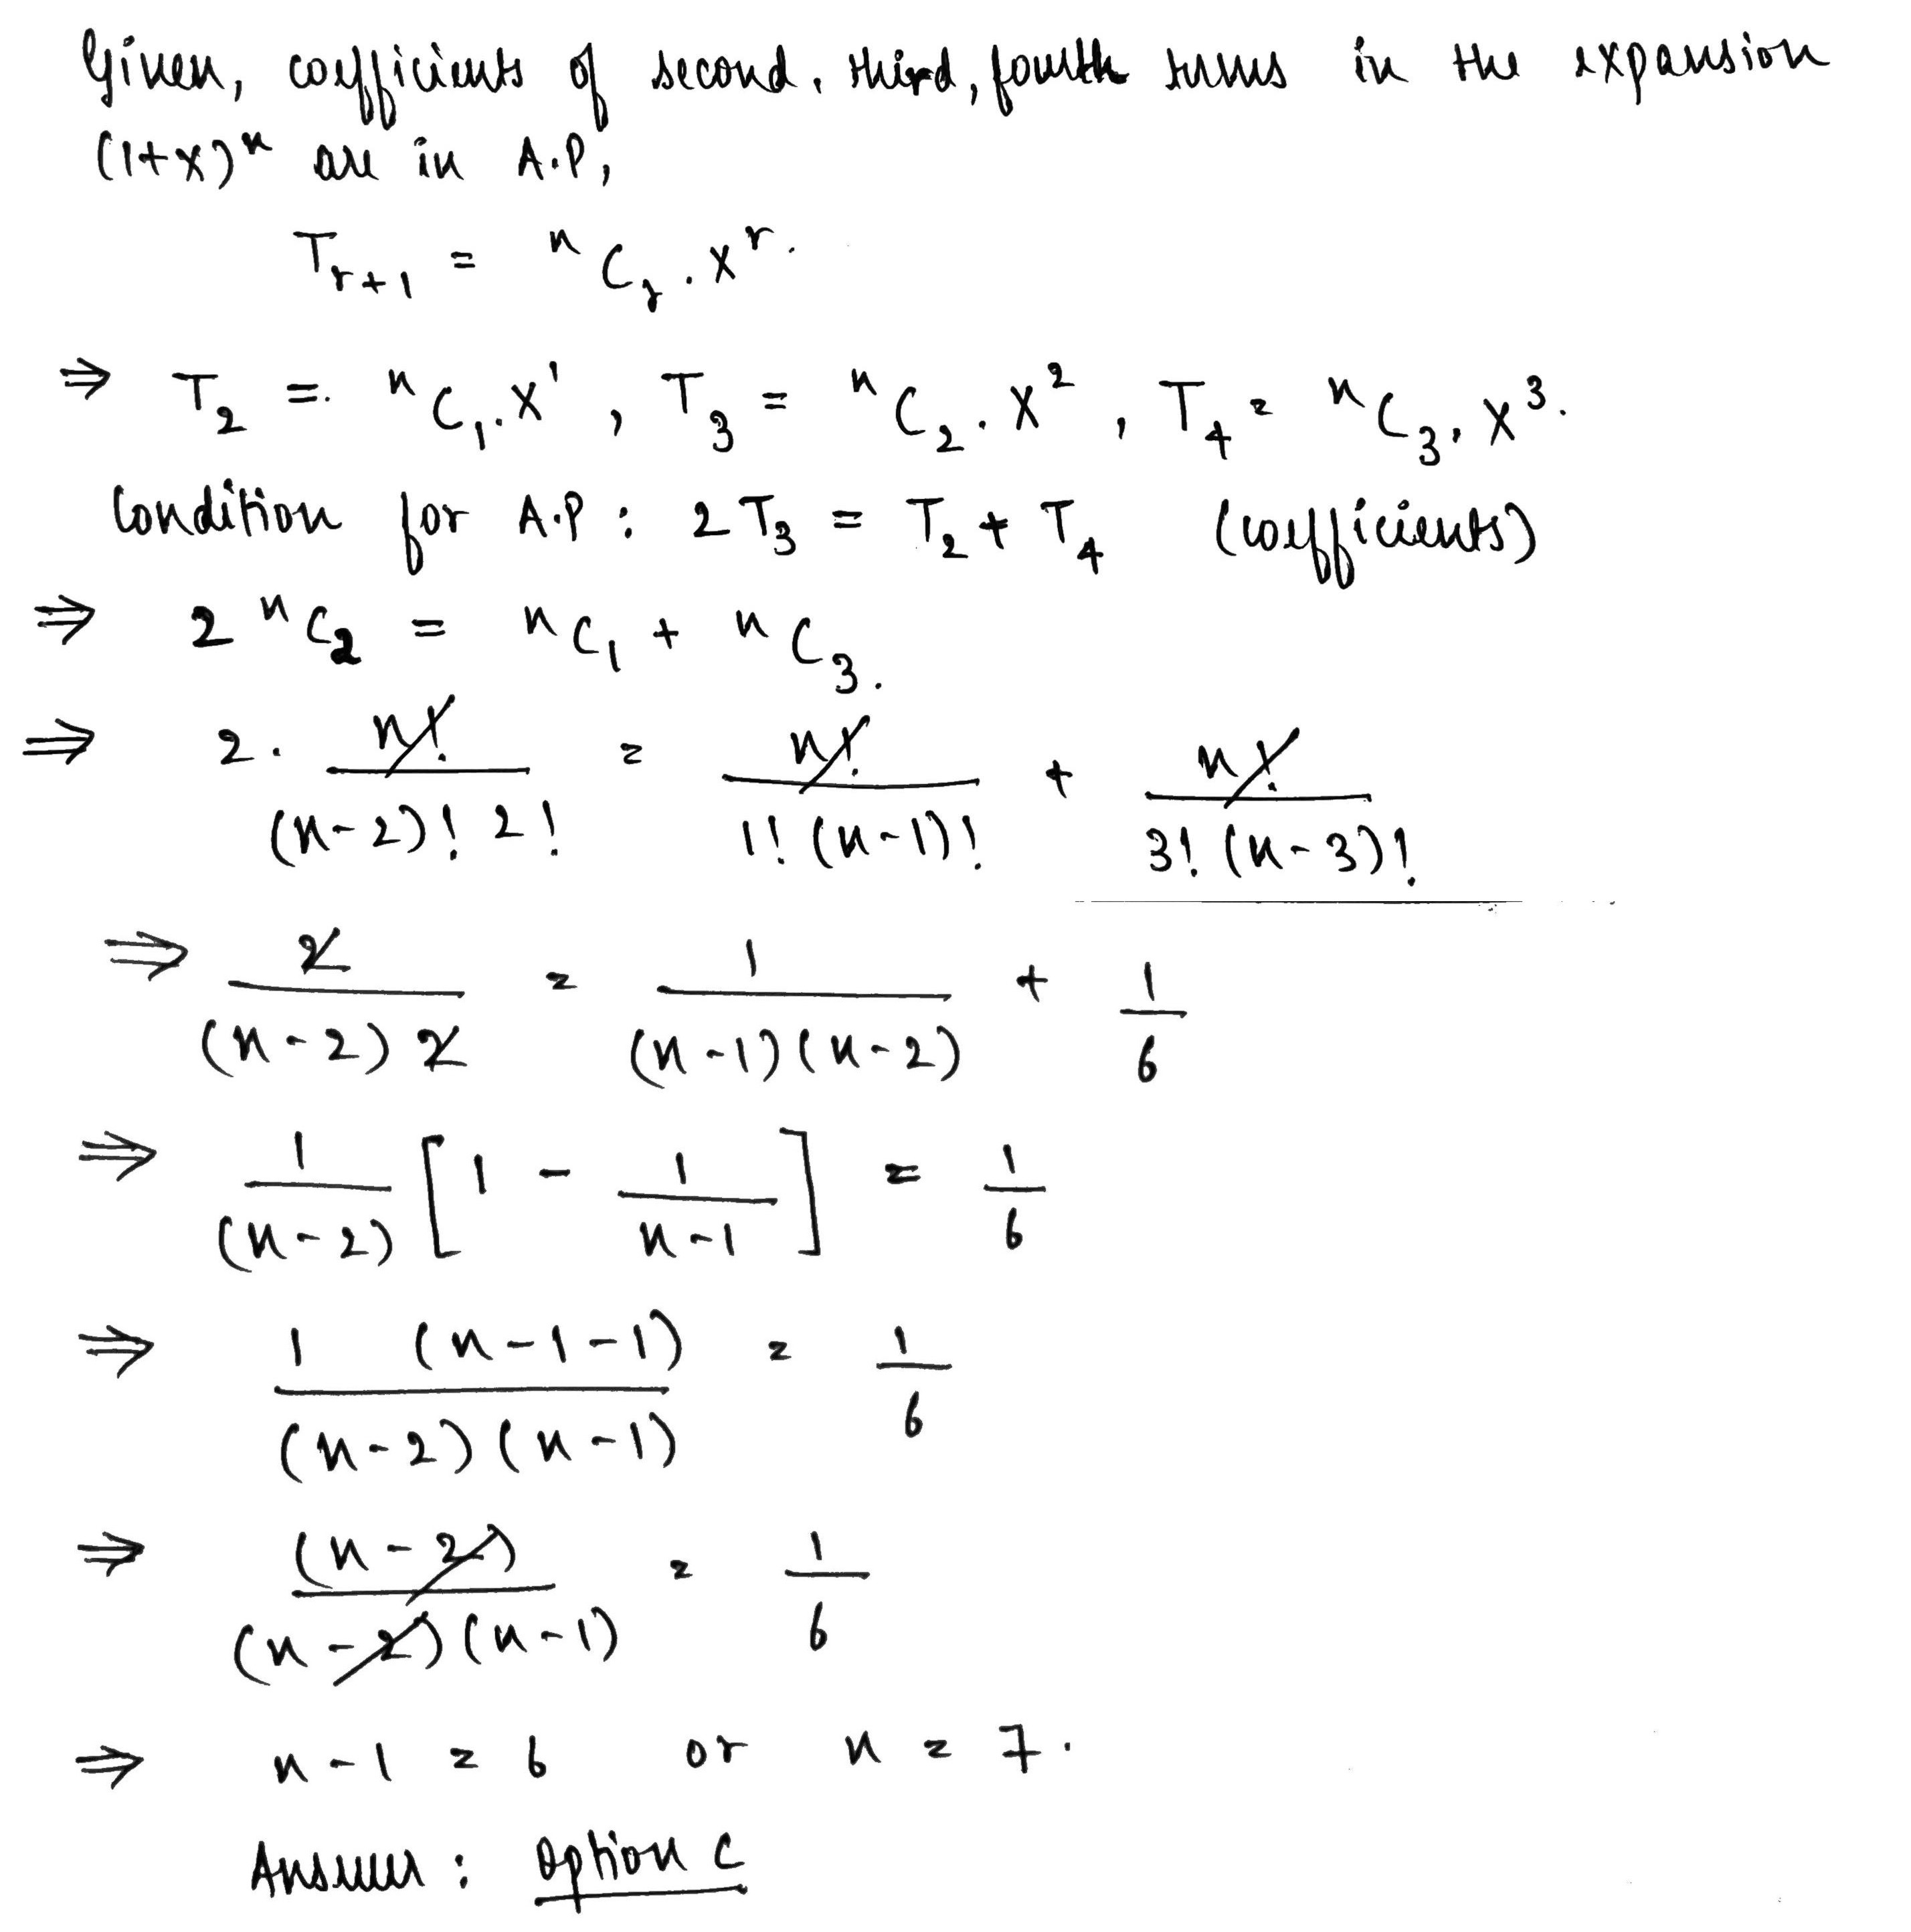 Given, coefficients of second, third, fourth terms in the expansion
(1+x)ⁿ are in A.P,
Tᵣ₊₁ = ⁿCᵣ . xʳ.
⇒ T₂ = ⁿC₁. x¹ , T₃ = ⁿC₂. x² , T₄ = ⁿC₃. x³.
Condition for A.P : 2T₃ = T₂ + T₄ (coefficients)
⇒ 2 ⁿC₂ = ⁿC₁ + ⁿC₃.
⇒ 2. n!/((n-2)! 2!) = n!/(1! (n-1)!) + n!/(3! (n-3)!)
⇒ 2/((n-2) 2) = 1/((n-1)(n-2)) + 1/6
⇒ 1/(n-2) [1 - 1/(n-1)] = 1/6
⇒ 1 (n-1-1)/((n-2)(n-1)) = 1/6
⇒ (n-2)/((n-2)(n-1)) = 1/6
⇒ n-1 = 6 or n = 7.
Answer : Option C